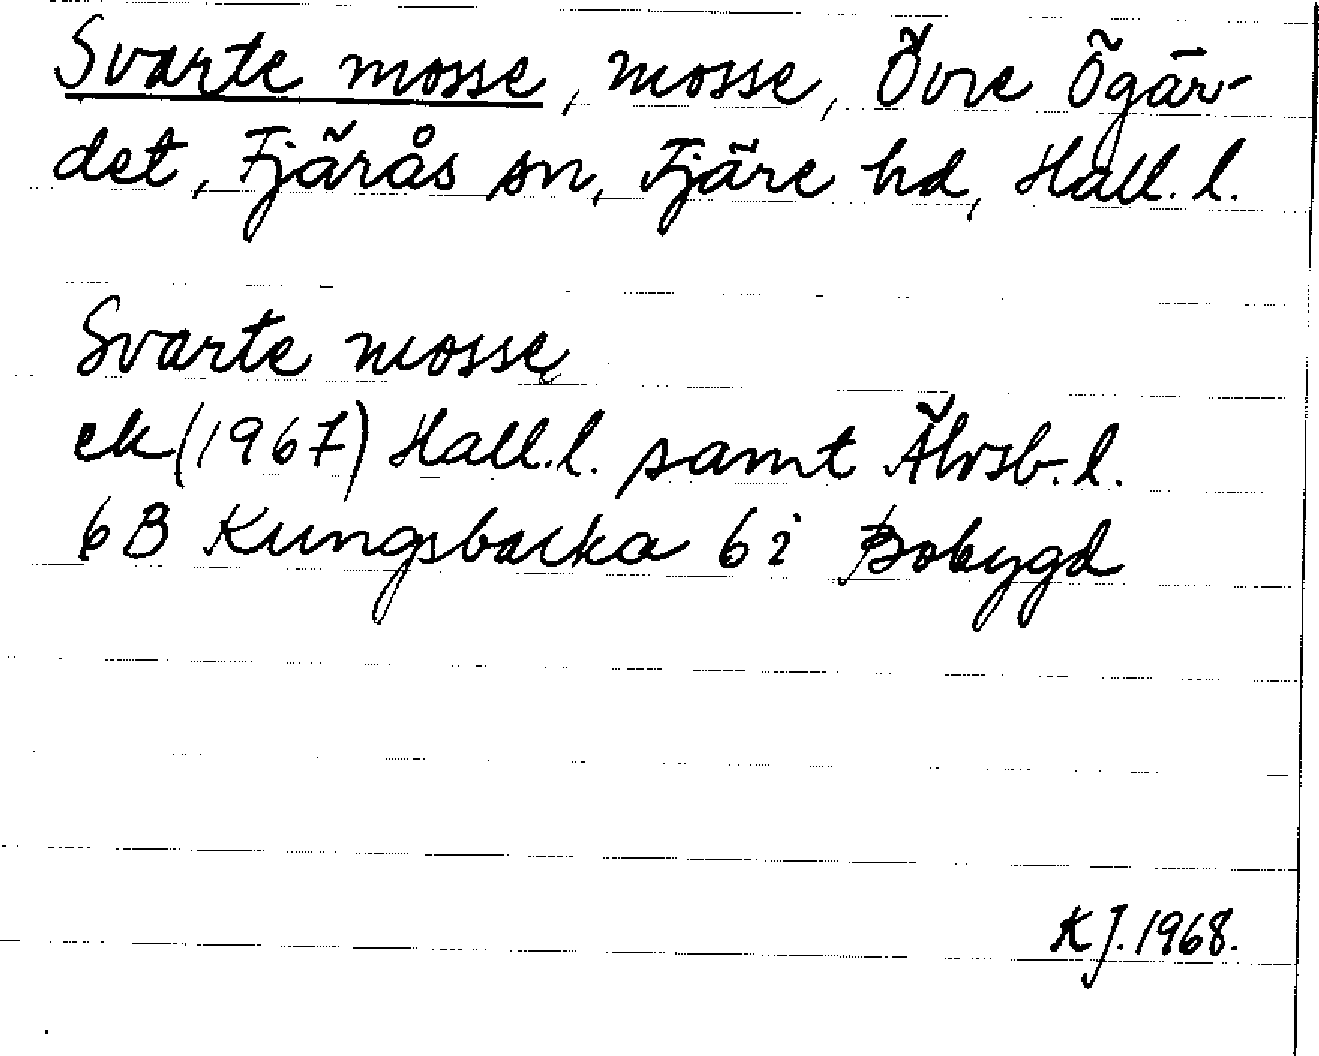 Svarte mosse, mosse, Övre Ögär-
det, Fjärås sn, Fjäre hd, Hall. l.
Svarte mosse
ek (1967) Hall. l. samt Älvsb. l.
6B Kungsbacka 6i Bobygd
KJ. 1968.